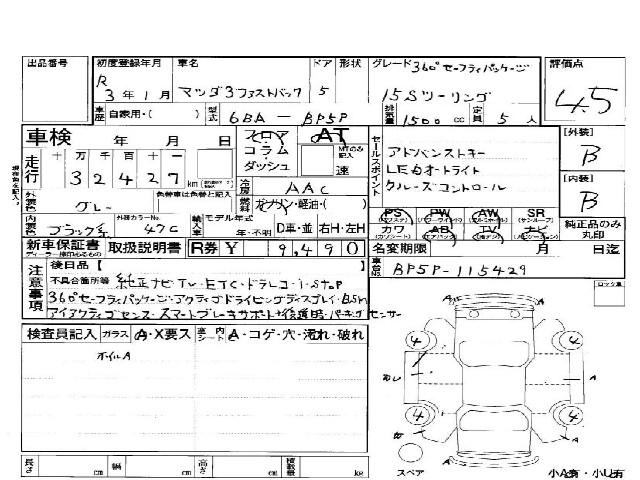 出品番号 初度登録年月 車名 ドア 形状 グレード 評価点
R 3年1月 マツダ3ファストバック 5 360°セーフティパッケージ
15Sツーリング
4.5
車歴 自家用・( ) 型式 6BA-BP5P 排気量 1500cc 定員 5人
車検 年 月 日 フロア AT
コラム MTのみ記入
ダッシュ 速
走行 十 万 千 百 十 一
32427 km
セールスポイント
アドバンストキー
LEDオートライト
クルーズコントロール
[外装]
B
[内装]
B
外装色 グレー 色替車は元色を記入 冷房 AAC
燃料 ガソリン・軽油・( )
内装色 ブラック系 外装カラーNo. 47C 輸入車 モデル年式 年・不明 D車・並 右H・左H
PS PW AW SR
(パワステ) (サンルーフ)
カワ AB TV ナビ
純正品のみ丸印
新車保証書 取扱説明書 R券 Y 9,490 名変期限 月 日迄
車台No. BP5P-115429
注意事項 後日品 [ ]
不具合箇所等 純正ナビTV・ETC・ドラレコ・i-STOP
360°セーフティパッケージ・アクティブドライビングディスプレイ・BSM
アイアクティブセンス・スマートブレーキサポート・後退時・パーキングセンサー
ロック車
検査員記入 ガラス A・X要ス 室内シート A・コゲ・穴・汚れ・破れ
ホイルA
4 4
A
4 4
A
A
長さ cm 幅 cm 高さ cm 積載量 kg
スペア 小A有・小U有